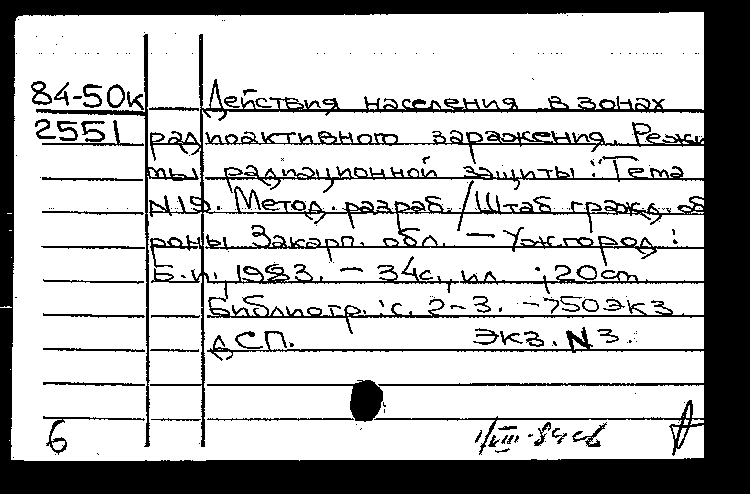 84-50к Действия населения в зонах
2551 радиоактивного заражения. Режи
мы радиационной защиты: Тема
N19. Метод. разраб. / Штаб гражд. об
роны Закарп. обл. — Ужгород:
Б.и., 1983. — 34с., ил. ; 20см.
Библиогр.: с. 2-3. — 750экз.
ДСП. экз. N3.
6